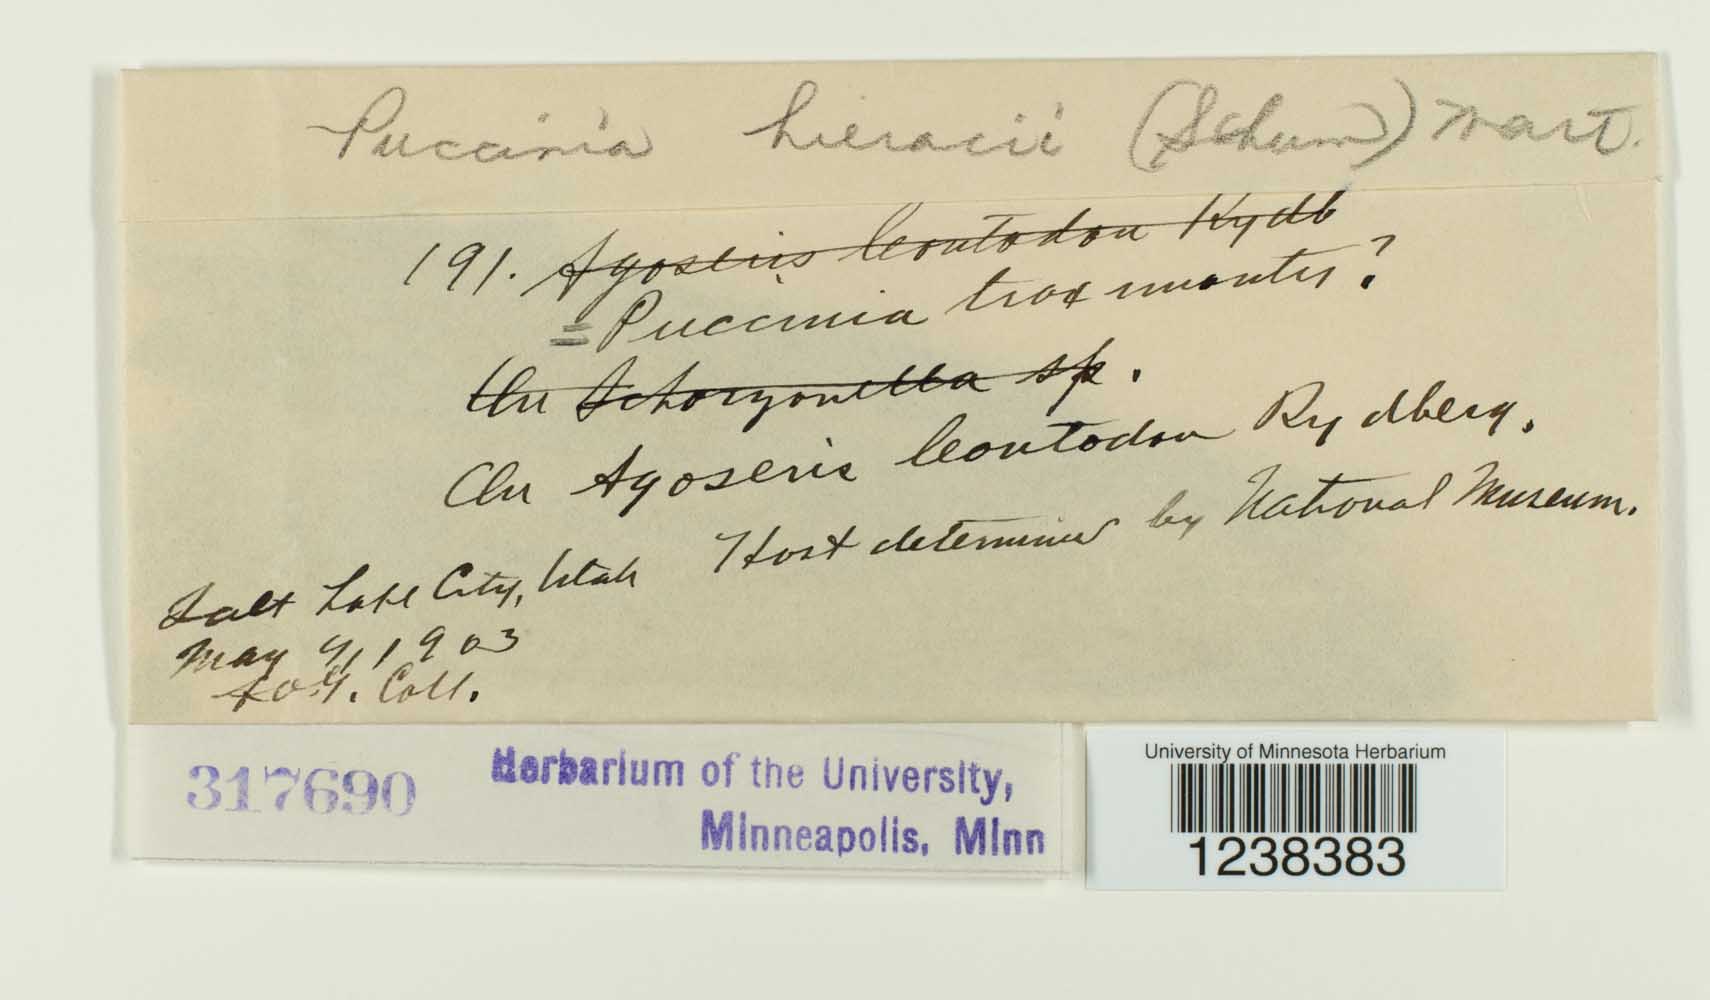 Puccinia hieracii (Schum) Mart.
191. Agoseris leontodon Rydb
= Puccinia troximontis?
On Schorzonella sp.
On Agoseris leontodon Rydberg.
Host determined by National Museum.
Salt Lake City, Utah
May 9, 1903
A.O.G. Coll.
317690
Herbarium of the University,
Minneapolis, Minn
University of Minnesota Herbarium
1238383